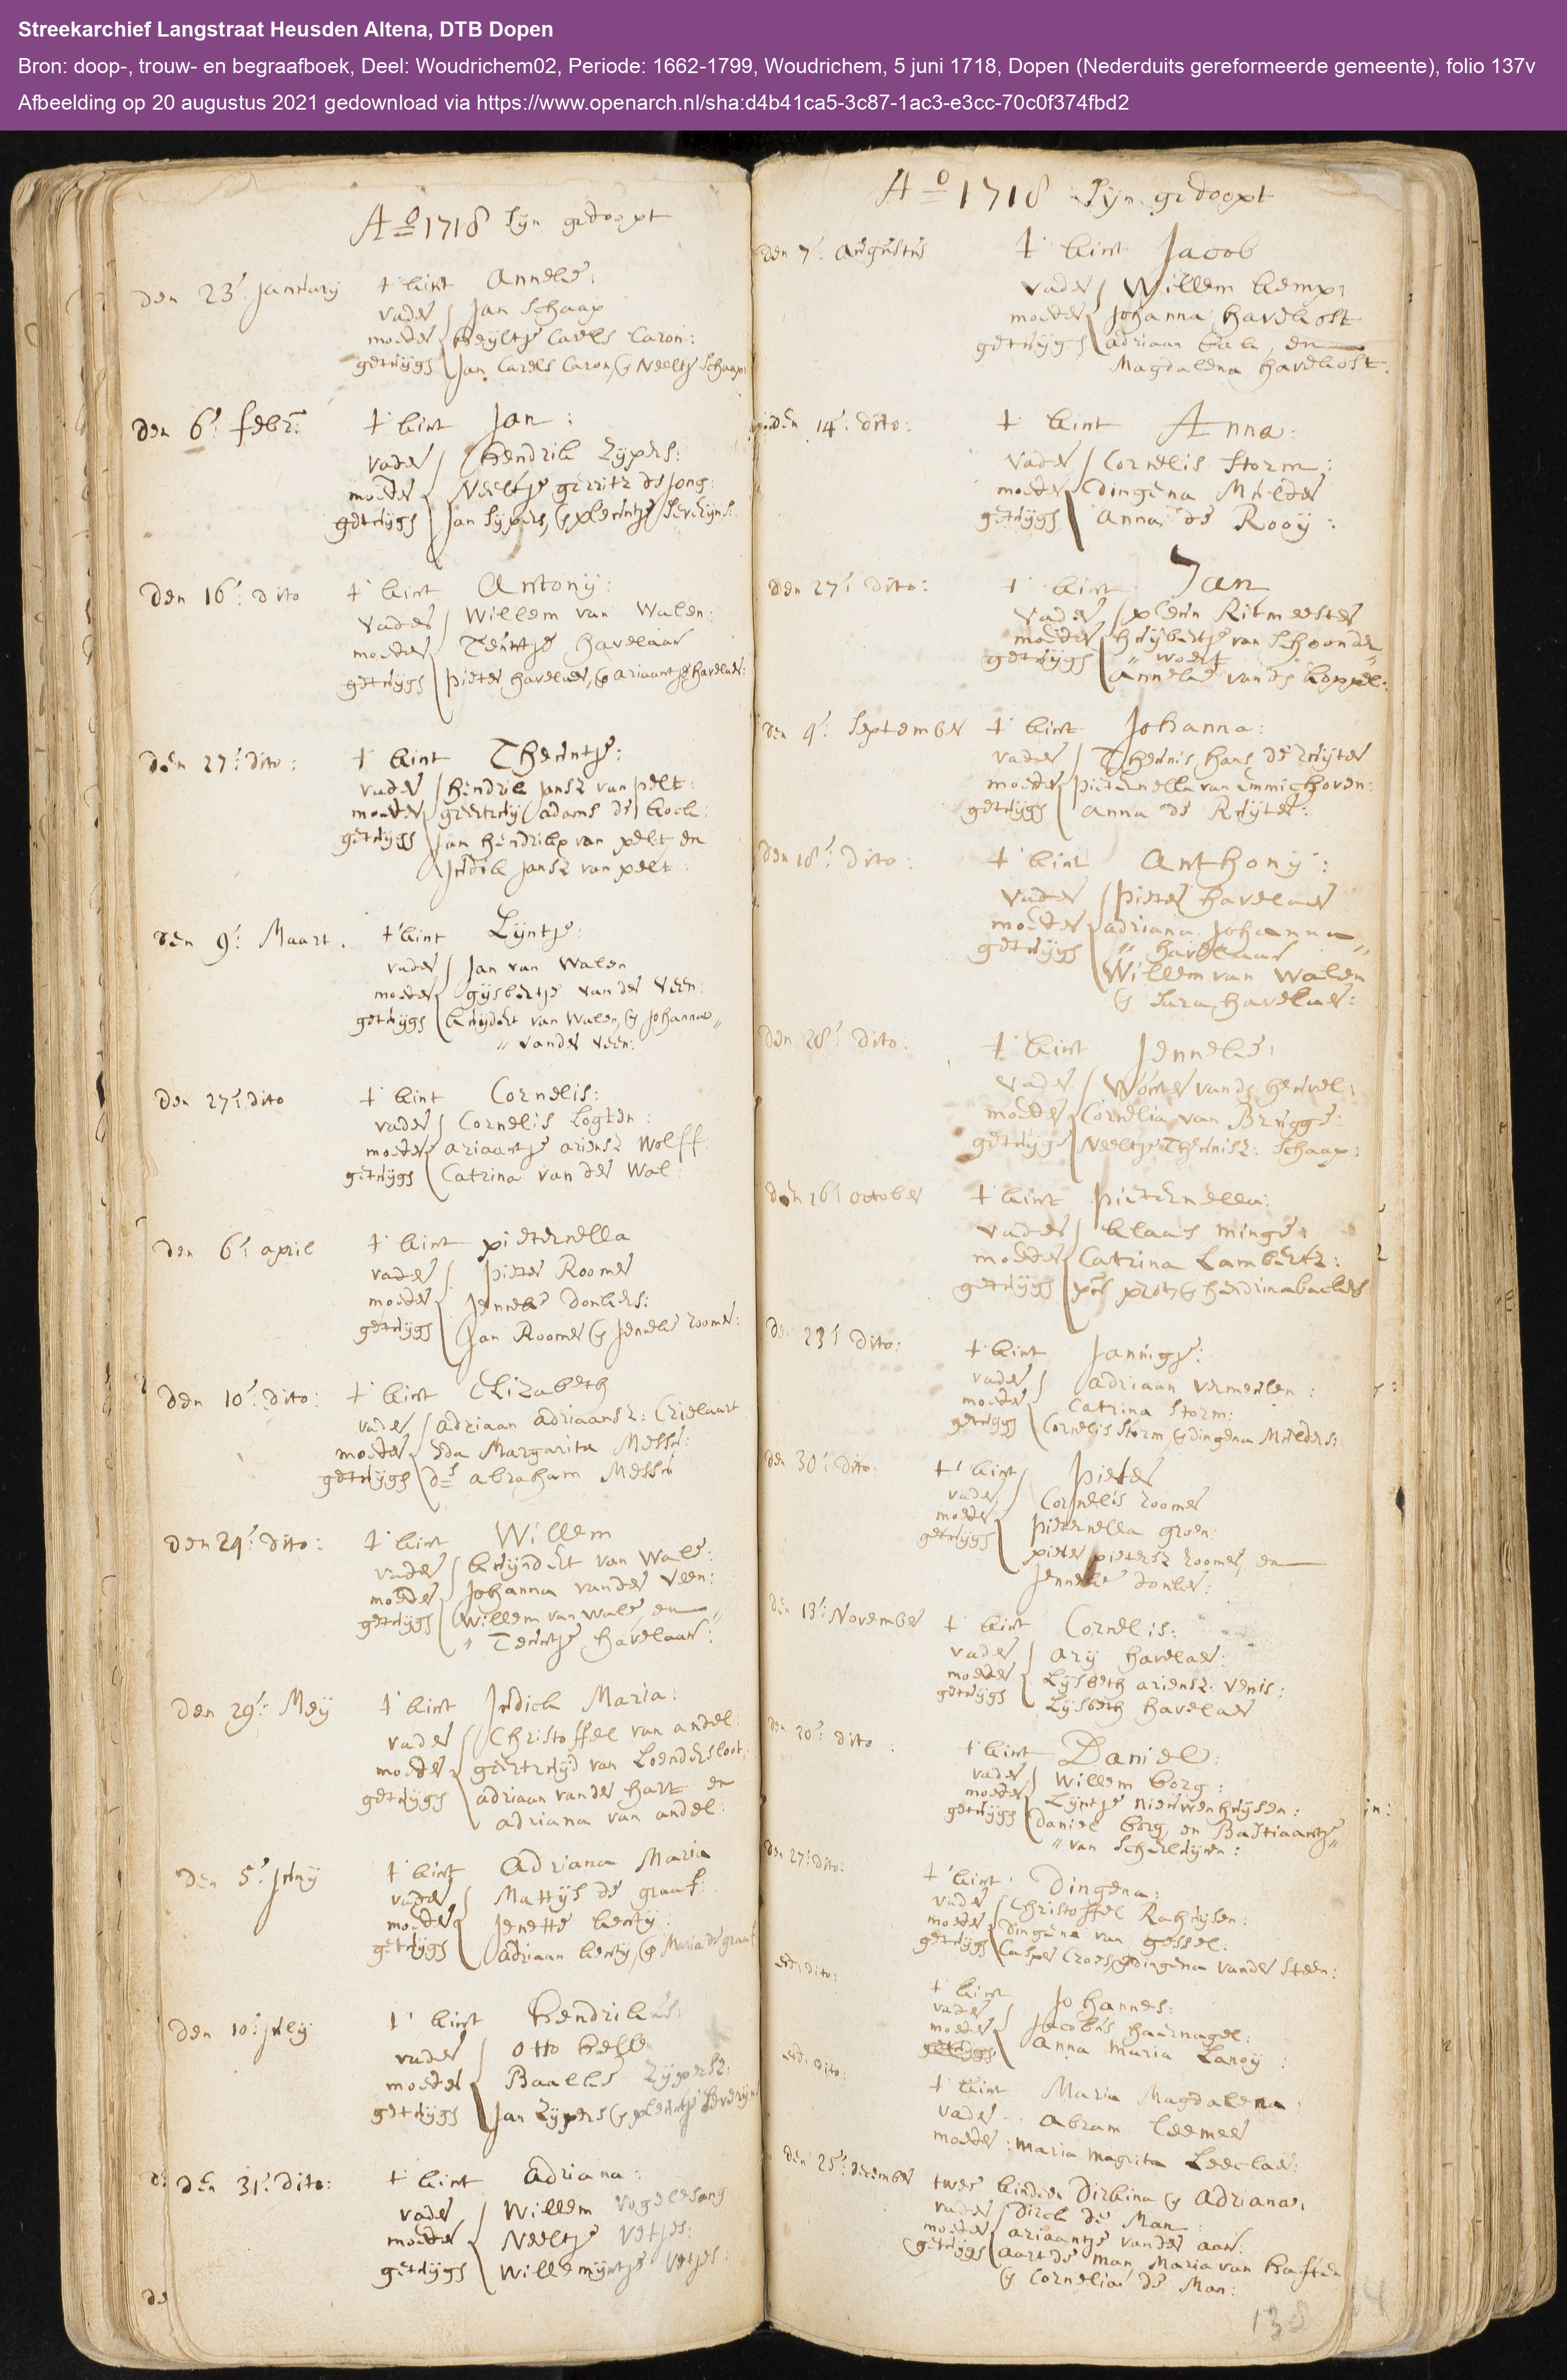 Streekarchief Langstraat Heusden Altena, DTB Dopen
Bron: doop-, trouw- en begraafboek, Deel: Woudrichem02, Periode: 1662-1799, Woudrichem, 5 juni 1718, Dopen (Nederduits gereformeerde gemeente), folio 137v
Afbeelding op 20 augustus 2021 gedownload via https://www.openarch.nl/sha:d4b41ca5-3c87-1ac3-e3cc-70c0f374fbd2
Ao 1718 Sijn gedoopt
den 23: January t' kint Anneke:
vader Jan Schaap
moeder Heijltje Carels Caron:
getuijgs Jan Carels Caron, & Neeltje Schaap:
den 6: febr: t' kint Jan:
vader Hendrik Zijpers:
moeder Neeltje gerritz de Jong:
getuijgs Jan Sijpers, & pleuntje Severijns:
den 16: dito t' kint Antonij:
vader Willem van Walen:
moeder Teuntje Havelaar
getuijgs pieter havelaer, & Ariaantje havelaer:
den 27: dito: t' kint Theuntje:
vader hendrik Jansz van pelt:
moeder geertruij adams de kock:
getuijgs Jan hendrikx van pelt en
Judik Jansz van pelt:
den 9: Maart. t' kint Lijntje:
vader Jan van Walen
moeder gijsbertje van der Veen:
getuijgs kruijdert van Walen, & Johanna
vander Veen:
den 27: dito t' kint Cornelis:
vader Cornelis Logten:
moeder ariaantje ariensz Wolff
getuijgs Catrina van der Wal:
den 6: april t' kint pieternella
vader pieter Roomer
moeder Jenneke Donkers:
getuijgs Jan Roomer & Jenneke roomer:
den 10: dito: t' kint Elizabeth
vader Adriaan Adriaansz: Crielaart
moeder Eda Margarita Messu:
getuijgs ds abraham Messu
den 24: dito: t' kint Willem
vader kruijndert van Wale:
moeder Johanna vander Veen:
getuijgs Willem van Wale, en
Teuntje Havelaar:
den 29: Meij t' kint Judick Maria:
vader Christoffel van andel
moeder geertruijd van Loendersloot:
getuijgs adriaan vander hart en
adriana van andel:
den 5: Junij t' kint Adriana Maria
vader Mattijs de graaf:
moeder Jenette kentij:
getuijgs Adriaan kentij, & Maria de graaf
den 10: july t' kint Hendrikus:
vader otto kelle
moeder Baalks Zijpersz:
getuijgs Jan Zijpers & pleuntje Severijns
den 31: dito: t' kint Adriana:
vader Willem Vogelesang
moeder Neeltje Vetjes:
getuijgs Willemijntje Vetjes:
de
Ao 1718 Sijn gedoopt
den 7: Augustus t' kint Jacob
vader Willem kemp:
moeder Johanna Haverkost
getuijgs adriaan , en
Magdalena haverkost.
den 14: dito: t' kint Anna:
vader Cornelis Storm:
moeder Dingena Mulder
getuijgs Anna de Rooij:
den 27: dito: t' kint Jan
vader pleun Ritmeester
moeder huijbertje van Schoonder
getuijgs woert
Anneke van de koppel:
den 4: September t' kint Johanna:
vader Theunis hans de ruijter
moeder pieternella van Emmichoven:
getuijgs Anna de Ruijter:
den 18: dito: t' kint Anthonij:
vader pieter havelaer
moeder adriana Johanna
getuijgs havelaar
Willem van Walen
& Sara havelaer:
den 28: dito: t' kint Jenneke:
vader Wouter van de heuvel:
moeder Cornelia van Brugge:
getuijgs Neeltje Theunisz: Schaap:
den 16: october t' kint pieternella:
vader klaas minge:
moeder Catrina Lambertz:
getuijgs ptr prot, & hendrina backers
den 23: dito: t' kint Jannigje:
vader Adriaan vermeulen:
moeder Catrina Storm:
getuijgs Cornelis Storm & dingena Mulders:
den 30: dito: t' kint pieter
vader Cornelis roomer
moeder pieternella groen:
getuijgs pieter pietersz roomer, en
Jenneke donker:
den 13: November t' kint Cornelis:
vader Arij havelaer:
moeder Lijsbeth ariensz: Venis:
getuijgs Lijsbeth havelaer
den 20: dito: t' kint Daniel:
vader Willem borg:
moeder Lijntje Nieuwenhuijsen:
getuijgs Daniel borg, en Bastiaantje
van Scharluijnen:
den 27: dito: t' kint Dingena:
vader Christoffel Rahuijsen:
moeder Dingena van gessel:
getuijgs Casper Croes, & dingena vander Steen:
eod: dito: t' kint Johannes:
vader Jacobus haernagel:
moeder Anna Maria Lanoij:
getuijgs
eod: dito: t' kint Maria Magdalena:
vader Abram Leemer
moeder: maria magrita Leeclaer:
den 25: december twee kinderen Dirkina & Adriana:
vader Dirck de Man
moeder ariaantje vander aar:
getuijgs aart de man, Maria van haften
& Cornelia de Man:
138